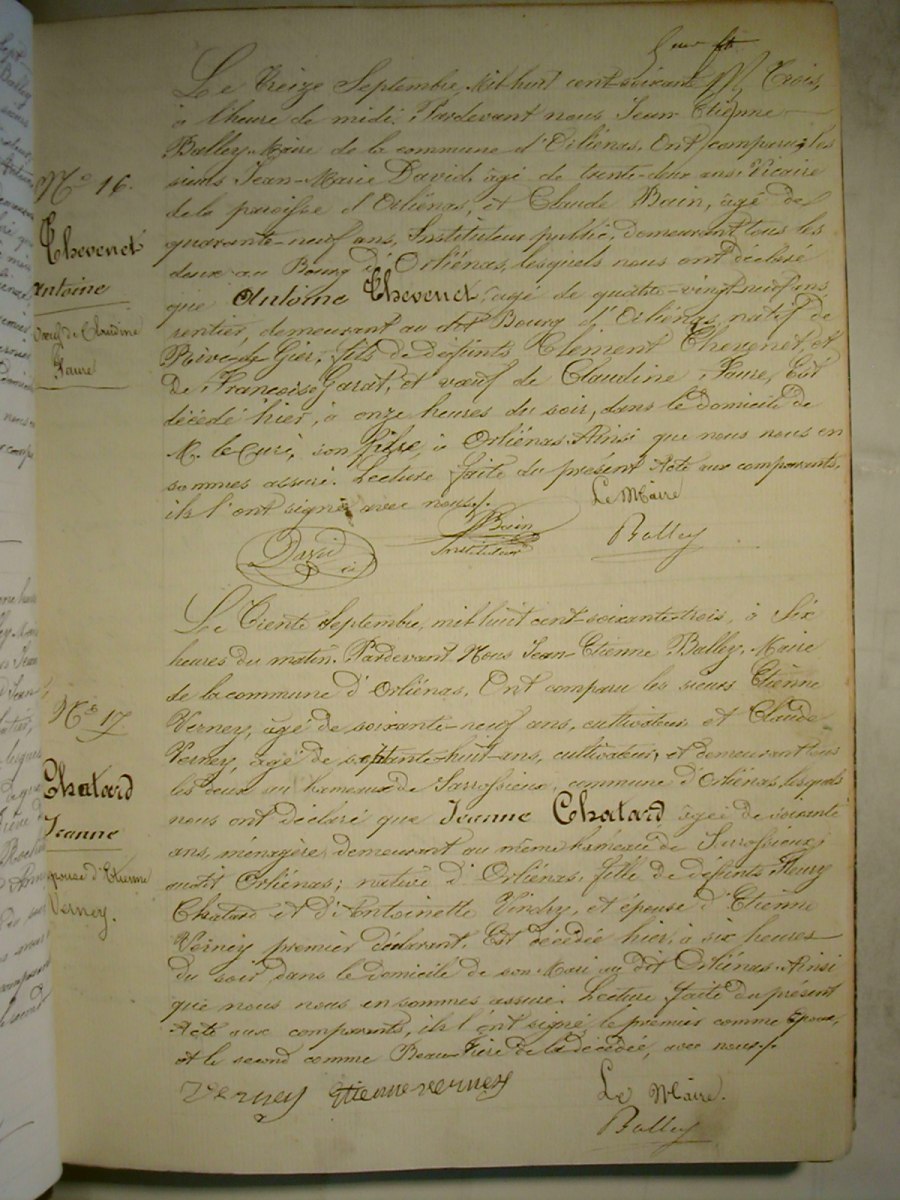 Le Treize Septembre, Mil huit cent soixante Trois,
à l'heure de midi. Pardevant nous Jean Etienne
Balley, Maire de la commune d'Orliénas, Ont comparu les
sieurs Jean-Marie David, âgé de trente-deux ans, Vicaire
de la paroisse d'Orliénas, et Claude Bain, âgé de
quarante-neuf ans, Instituteur public, demeurant tous les
deux au Bourg d'Orliénas, lesquels nous ont déclaré
que Antoine Thevenet, âgé de quatre-vingt-neuf ans
rentier, demeurant au dit Bourg d'Orliénas, natif de
Rive-de Gier, fils de défunts Clément Thevenet et
De Françoise Garat, et vœuf de Claudine Faure, Est
décédé hier, à onze heures du soir, dans le domicile de
M. le Curé, son fils, à Orliénas. Ainsi que nous nous en
sommes assuré. Lecture faite du présent Acte aux comparants,
ils l'ont signé avec nous.
N° 16.
Thevenet
Antoine
vœuf de Claudine
Faure
Le Maire
David
Bain
Instituteur
Balley
Le Trente Septembre, mil huit cent-soixante-trois, à Six
heures du matin. Pardevant Nous Jean-Etienne Balley, Maire
de la commune d'Orliénas, Ont comparu les sieurs Etienne
Verney, âgé de soixante-neuf ans, cultivateur et Claude
Verney, âgé de septante-huit-ans, cultivateur, et demeurant tous
les deux au hameau de commune d'Orliénas, lesquels
nous ont déclaré que Jeanne Chatard âgée de soixante
ans, ménagère, demeurant au même hameau de
audit Orliénas; native d'Orliénas, fille de défunts Fleury
Chatard et d'Antoinette Vindry, et épouse d'Etienne
Verney premier déclarant, Est décédée hier, à six heures
du soir dans le domicile de son Mari au dit Orliénas. Ainsi
que nous nous en sommes assuré. Lecture faite du présent
Acte aux comparants, ils l'ont signé, le premier comme Epoux,
et le second comme Beau-Frère de la décédée, avec nous.
N° 17
Chatard
Jeanne
épouse d'Etienne
Verney.
Verney Etienne verney
Le Maire.
Balley